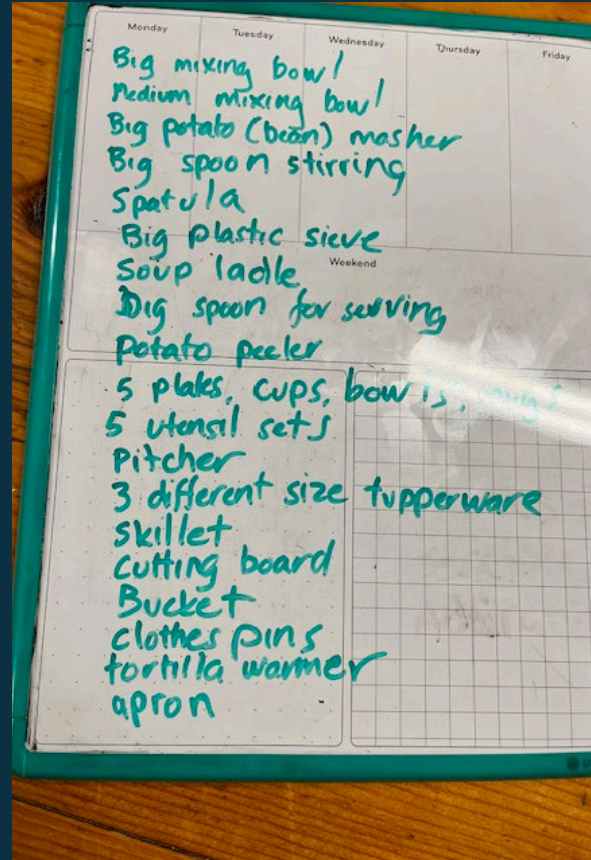 Monday Tuesday Wednesday Thursday Friday
Big mixing bowl
Medium mixing bowl
Big potato (bean) masher
Big spoon stirring
Spatula
Big plastic sieve
Weekend
Soup ladle
Big spoon for serving
potato peeler
5 plates, cups, bowls, mugs
5 utensil sets
Pitcher
3 different size tupperware
skillet
cutting board
Bucket
clothes pins
tortilla warmer
apron